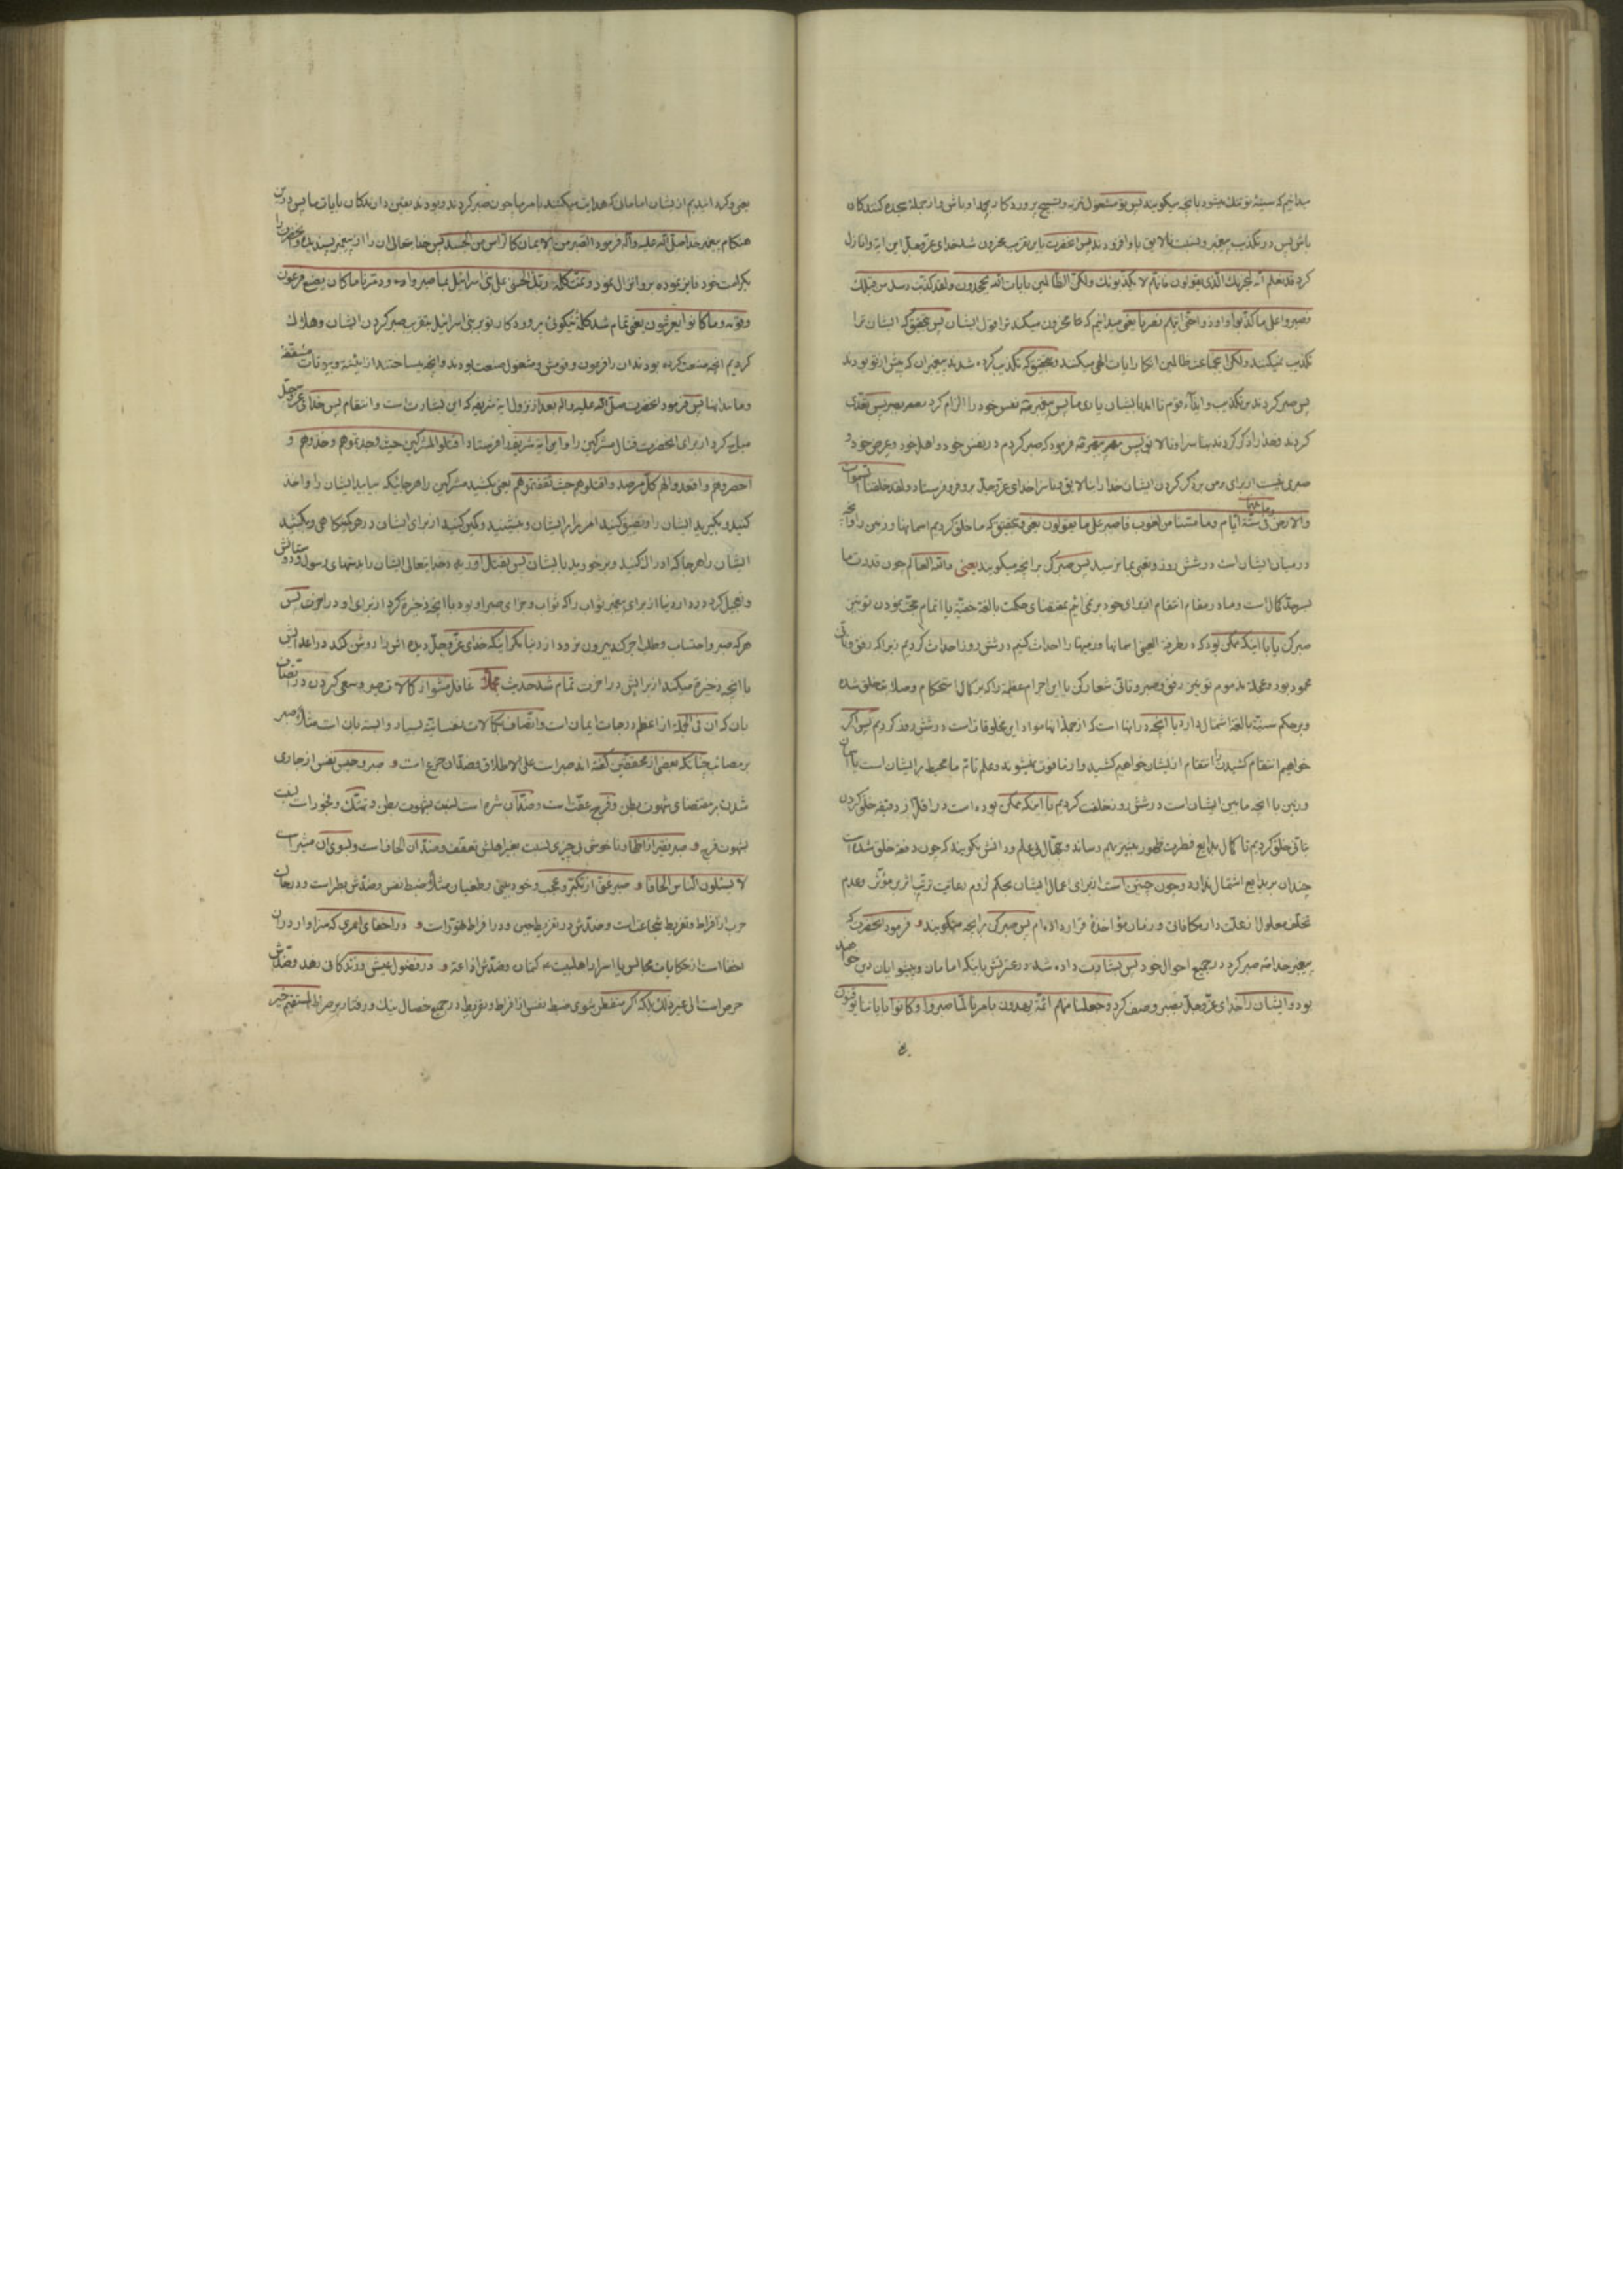 میدانیم که سینهٔ تو تنک میشود بانچه میکویند پس تو مشغول تنزیه و تسبیح پروردکار بحمد او باش و از جمله سجده کنندکان
باش پس در تکذیب پیغمبر و نسبت نالایق باو افزودند پس انحضرت باین تقریب محزون شد خدای عزّ و جلّ این ایه وا نازل
کرد قد نعلم انّه لیحزنك الّذی یقولون فانّهم لا یکذّبونك ولکنّ الظّالمین بایات اللّه یجحدون ولقد کذّبت رسل من قبلك
فصبروا علی ما کذّبوا و اوذوا حتّی اتیهم نصرنا یعنی میدانیم که محزون میکند ترا قول ایشان پس بتحقیق که ایشان ترا
تکذیب نمیکنند ولکن جماعت ظالمین انکار ایات الهی میکنند و بتحقیق که تکذیب کرده شدند پیغمبران که پیش از تو بودند
پس صبر کردند بر تکذیب و ایذاء قوم تا امد بایشان یاری ما پس پیغمبر نفس خود را الزام کرد بصبر پس تعدّی
کردند و خدا را ذکر کردند بناسزا و نالایق پس پیغمبر فرمود که صبر کردم در نفس خود و اهل خود و عرض خود و
صبری نیست از برای من بر ذکر کردن ایشان خدا را بنالایق و ناسزا خدای عزّ و جلّ برو فرو فرستاد و لقد خلقنا السّموات
والارض وما بینهما فی ستّة ایّام وما مسّنا من لغوب فاصبر علی ما یقولون یعنی بتحقیق که ما خلق کردیم اسمانها و زمین را و انچه
در میان ایشان است در شش روز و تعبی بما نرسید پس صبر کن بر انچه میکویند یعنی واللّه العالم چون قدرت ما
بسرحدّ کمال است و ما در مقام انتقام افعال خود بر نمی ائیم بمقتضای حکمت بالغهٔ خفیّه یا اتمام حجّت نمودن تو نیز
صبر کن یا با اینکه ممکن بود که در طرفة العینی اسمانها و زمینها را احداث کنیم در شش روز احداث کردیم زیرا که رفق و تانّی
محمود بود و عجله مذموم تو نیز رفق و صبر و تانّی شعار کن با این اجرام عظیمه را که بر کمال استحکام و صلابت خلق شده
و بر حکم سنیّهٔ بالغه اشتمال دارد با انچه در انها است که از جملهٔ انها مواد این مخلوقات است در شش روز کردیم پس اکر
خواهیم انتقام کشیدن را انتقام از ایشان خواهیم کشید و از ما فوت نمیشوند و علم تامّ ما محیط بر ایشان است یا اسمان
و زمین با انچه مابین ایشان است در شش روز خلقت کردیم با اینکه ممکن بوده است در اقلّ از دقیقه خلق کردن
بتانّی خلق کردیم تا کمال بدایع فطرت ظهور بیشتر بهم رساند و جهّال بی علم و دانش نکویند که چون دفعة خلق شده است
چندان بر بدایع اشتمال ندارد و چون چنین است از برای اعمال ایشان بحکم لزوم رعایت ترتّب اثر بر مؤثّر و عدم
تخلّف معلول از علّت دار مکافاتی و زمان مؤاخذهٔ قرار داده ام پس صبر کن بر انچه میکویند و فرمود انحضرت که
پیغمبر خدا صبر کرد در جمیع احوال خود پس بشارت داده شد در عترتش باینکه امامان و پیشوایان دین خواهند
بود و ایشان را خدای عزّ و جلّ بصبر وصف کرد و جعلنا منهم ائمّة یهدون بامرنا لمّا صبروا و کانوا بایاتنا یوقنون
یعنی وکردانیدیم از یشان امامانی که هدایت میکنند بامر ما چون صبر کردند و بودند یقین دارندکان بایات ما پس درین
هنکام پیغمبر خدا صلّی اللّه علیه وآله فرمود الصّبر من الایمان کالرّأس من الجسد پس خدایتعالی ان را از پیغمبر پسندیده و انحضرت را
بکرامت خود فایز نموده برو انزال نمود و تمّت کلمة ربّك الحسنی علی بنی اسرائیل بما صبروا و دمّرنا ما کان یصنع فرعون
وقومه وما کانوا یعرشون یعنی تمام شد کلمهٔ نیکوئی پروردکار تو بر بنی اسرائیل بتقریب صبر کردن ایشان و هلاك
کردیم انچه صنعت کرده بودند ان را فرعون و قومش و مشغول صنعت بودند و انچه میساختند از ابنیه و بیوتات مسقّفه
و مانند اینها پس فرمود انحضرت صلّی اللّه علیه واله بعد از نزول ایهٔ شریفه که این بشارت است و انتقام پس خدای عزّ و جلّ
مباح کرد از برای انحضرت قتال مشرکین را و این ایهٔ شریفه را فرستاد اقتلوا المشرکین حیث وجدتموهم وخذوهم و
احصروهم واقعدوا لهم کلّ مرصد واقتلوهم حیث ثقفتموهم یعنی بکشید مشرکین را هر جائیکه بیابید ایشان را و اخذ
کنید و بکیرید ایشان را و تضییق کنید امر را بر ایشان و بنشینید و کمین کنید از برای ایشان در هر کمینکاهی و بکشید
ایشان را هر جا که ادراك کنید و برخورید بایشان پس بقتل اورد خدایتعالی ایشان را بدستهای رسول و دوستانش
و تعجیل کرد در دار دنیا از برای پیغمبر ثواب را که ثواب و جزای صبر او بود با انچه ذخیره کرد از برای او در اخرت پس
هر که صبر و احتساب و طلب اجر کند بیرون نرود از دنیا مکر اینکه خدای عزّ و جلّ دیده اش را روشن کند در اعدایش
با انچه ذخیره میکند از برایش در اخرت تمام شد حدیث مبارك غافل مشو از کمالات صبر و سعی کردن در اتّصاف
بان که ان فی الجمله از اعظم درجات ایمان است و اتّصاف بکمالات نفسانیّه بسیار وابسته بان است مثلا صبر
بر مصائب چنانکه بعضی از محقّقین کفته اند صبر است علی الاطلاق و ضدّ ان جزع است و صبر و حبس نفس از جاری
شدن بر مقتضای شهوت بطن و فرج عفّت است و ضدّ ان شره است نسبت بشهوت بطن و تهتّك و فجور است نسبت
بشهوت فرج و صبر فقیر از اظهار ناخوش بی چیزی نسبت بغیر اهلش تعفّف و ضدّ ان الحاف است و بسوی ان مشیر است
لا یسئلون النّاس الحافا و صبر غنی از تکبّر و عجب و خود بینی و طغیان مثلا ضبط نفس و ضدّش بطر است و در میان
حرب از افراط و تفریط شجاعت است و ضدّش در تفریط جبن و در افراط تهوّر است و در اخفای امری که سزاوار در ان
اخفا است از حکایات مجالس یا اسرار اهلبیت ع کتمان و ضدّش اذاعة و در فضول عیش و زندکانی زهد و ضدّش
حرص است الی غیر ذلك بلکه اکر متفطّن شوی ضبط نفس از افراط و تفریط در جمیع خصال نیك و رفتار بر صراط المستقیم خیر